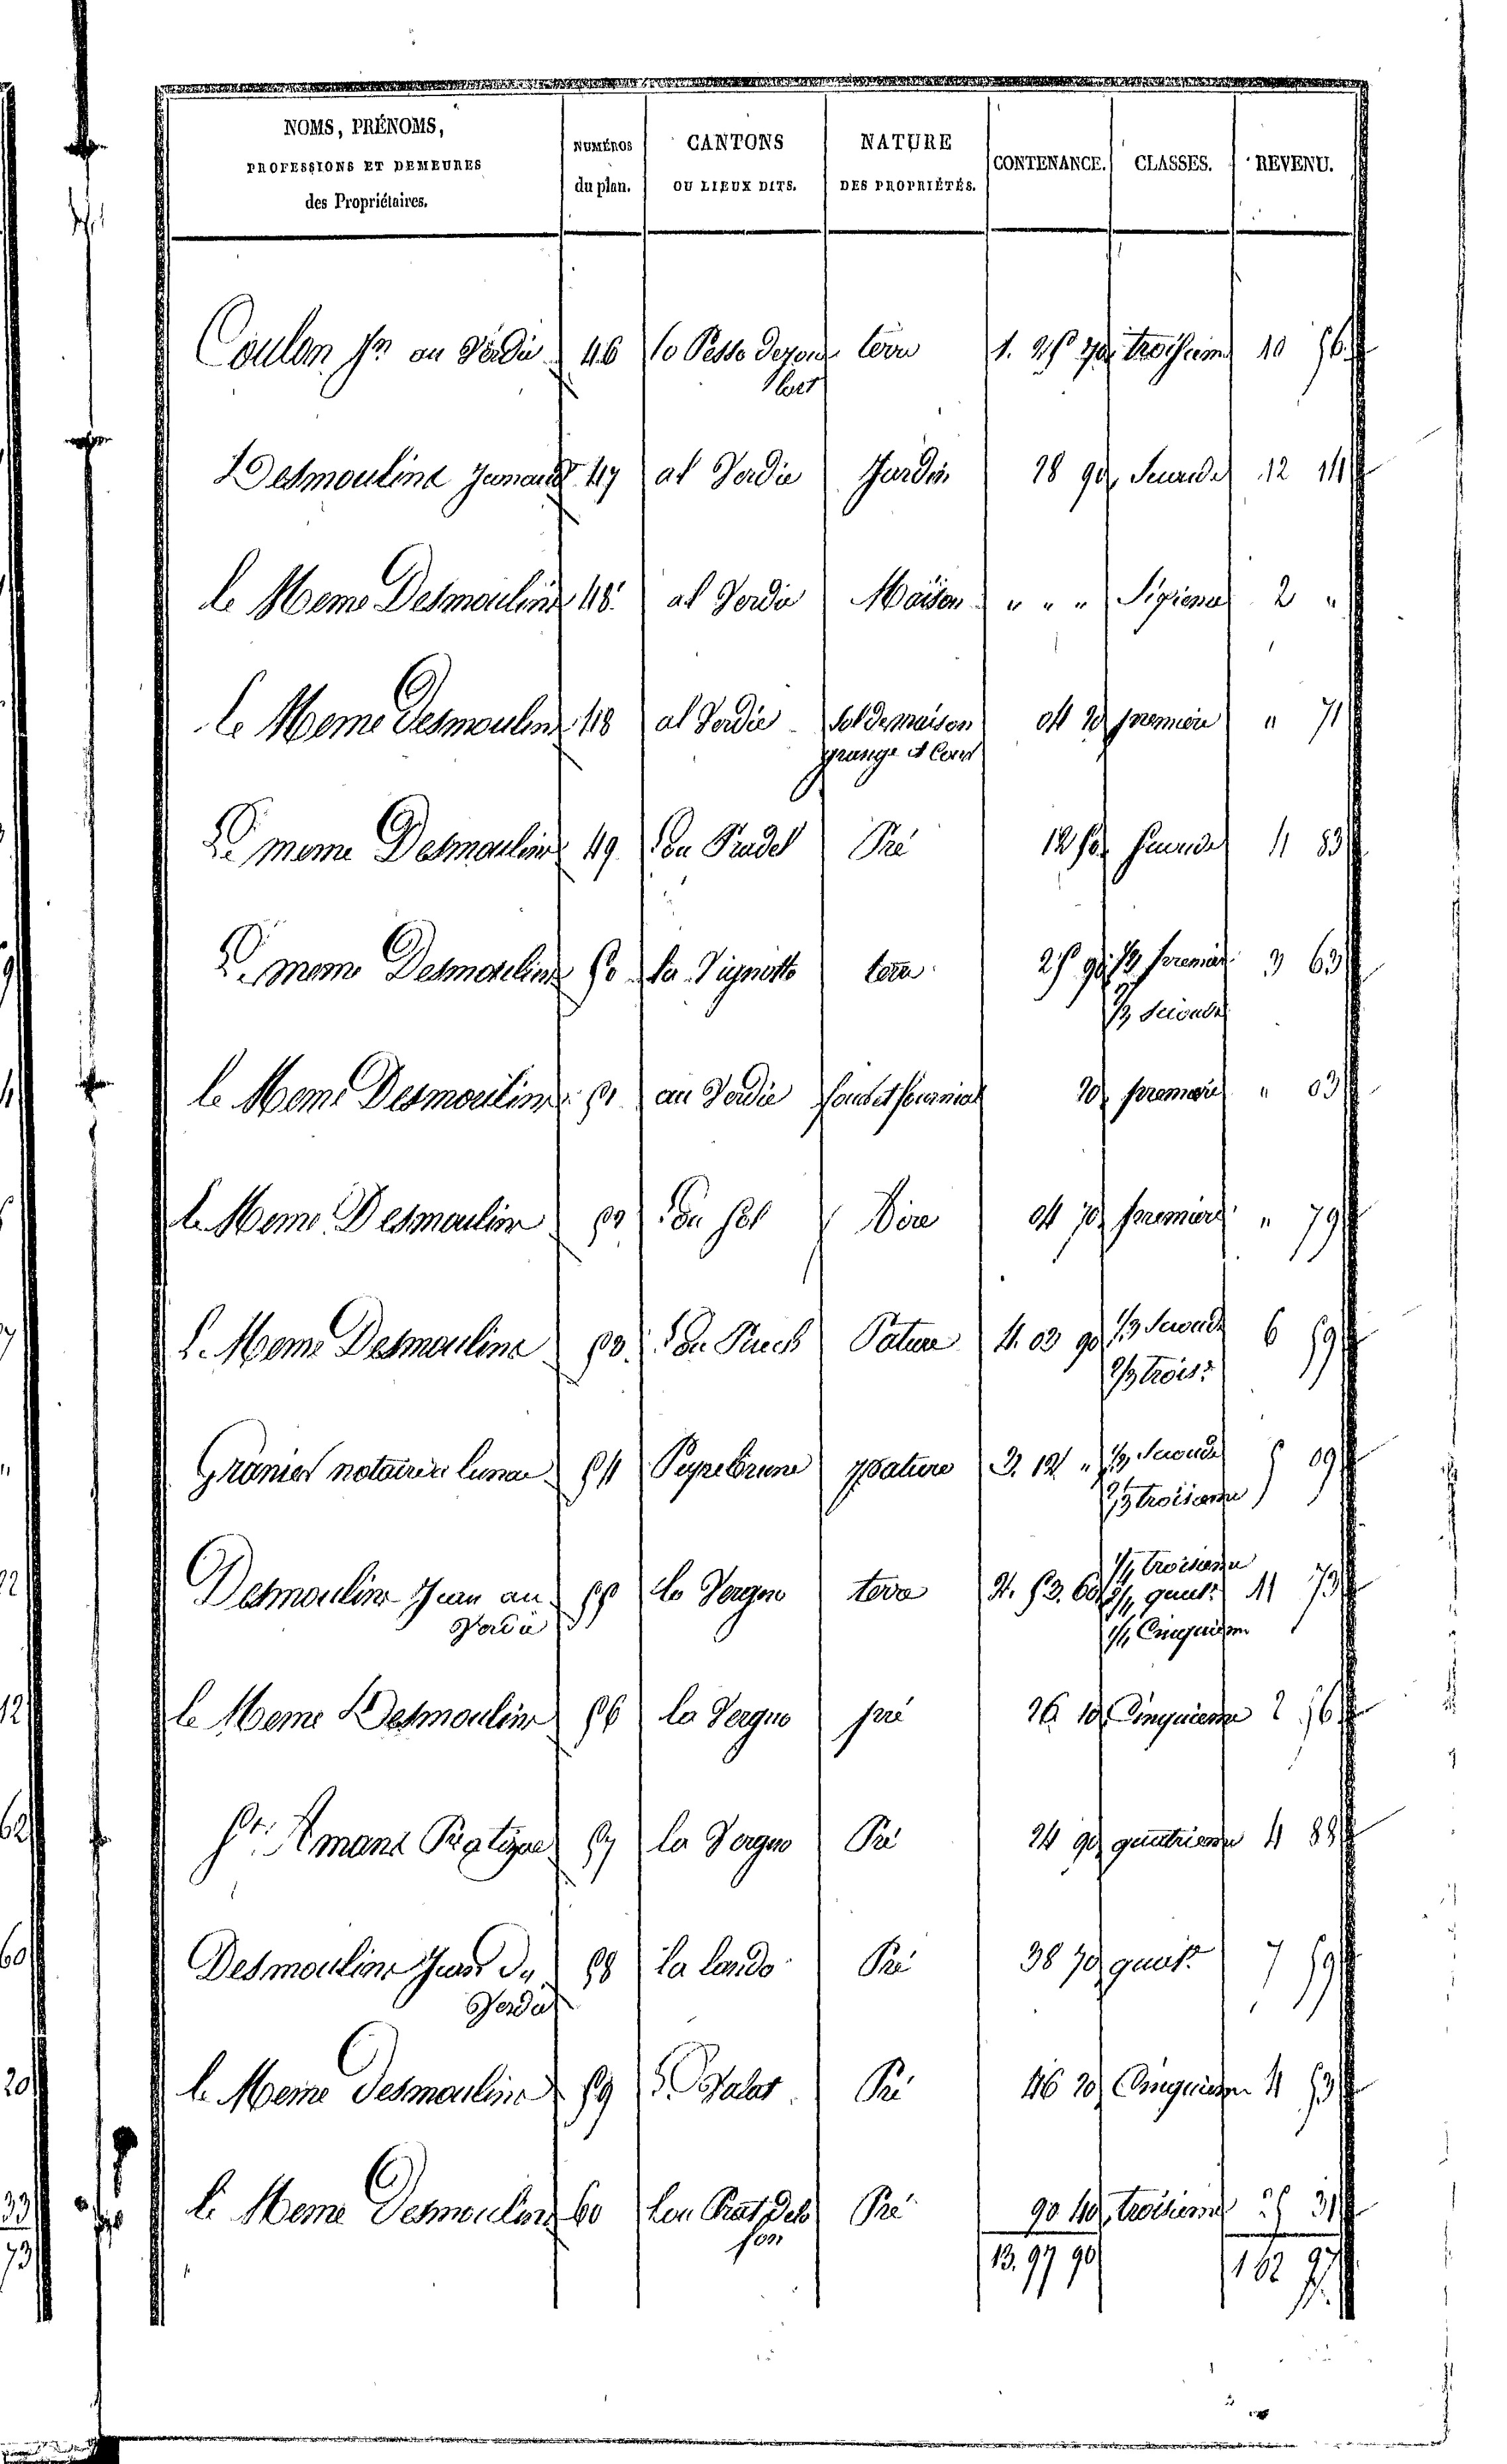 NOMS, PRÉNOMS,
PROFESSIONS ET DEMEURES
des Propriétaires.
NUMÉROS
du plan.
CANTONS
OU LIEUX DITS.
NATURE
DES PROPRIÉTÉS.
CONTENANCE.
CLASSES.
REVENU.
Coulon au Verdie 46 terre troisieme 10 56
Desmoulins 47 al Verdie Jardin 28 90 Seconde 12 14
le Meme Desmoulins 48 al Verdie Maison " " " 2 "
le Meme Desmoulins 48 al Verdie Sol de maison 04 20 premiere " 71
grange et Cour
Le meme Desmoulins 49 Lou Pradel Pré 12 50 Seconde 4 83
Le meme Desmoulins 50 la Vignotte terre 25 90 1/3 premiere 3 63
Seconde
le Meme Desmoulins 51 au Verdie 20 premiere " 03
le Meme Desmoulins 52 Lou Sol 04 70 premiere " 79
le Meme Desmoulins 53 Lou Puech Pature 4. 03 90 1/3 Seconde 6 59
2/3 trois:
Granier notaire 54 Peyrebrune pature 3. 12 " 1/3 Seconde 5 09
2/3 troisieme
Desmoulins Jean au 55 la Vergne terre 2. 53. 60 1/4 troisieme 11 73
Verdie 2/4 quat:
1/4 Cinquieme
le Meme Desmoulins 56 la Vergne pré 26 10 Cinquieme 2 56
St. Amans 57 la Vergne Pré 24 90 quatrieme 4 88
Desmoulins Jean du 58 la lande Pré 38 70 quat: 7 59
Verdie
le Meme Desmoulins 59 Valat Pré 46 20 Cinquieme 4 53
le Meme Desmoulins 60 Lou Prat Pré 90 40 troisieme 25 31
13. 97 90 162 97